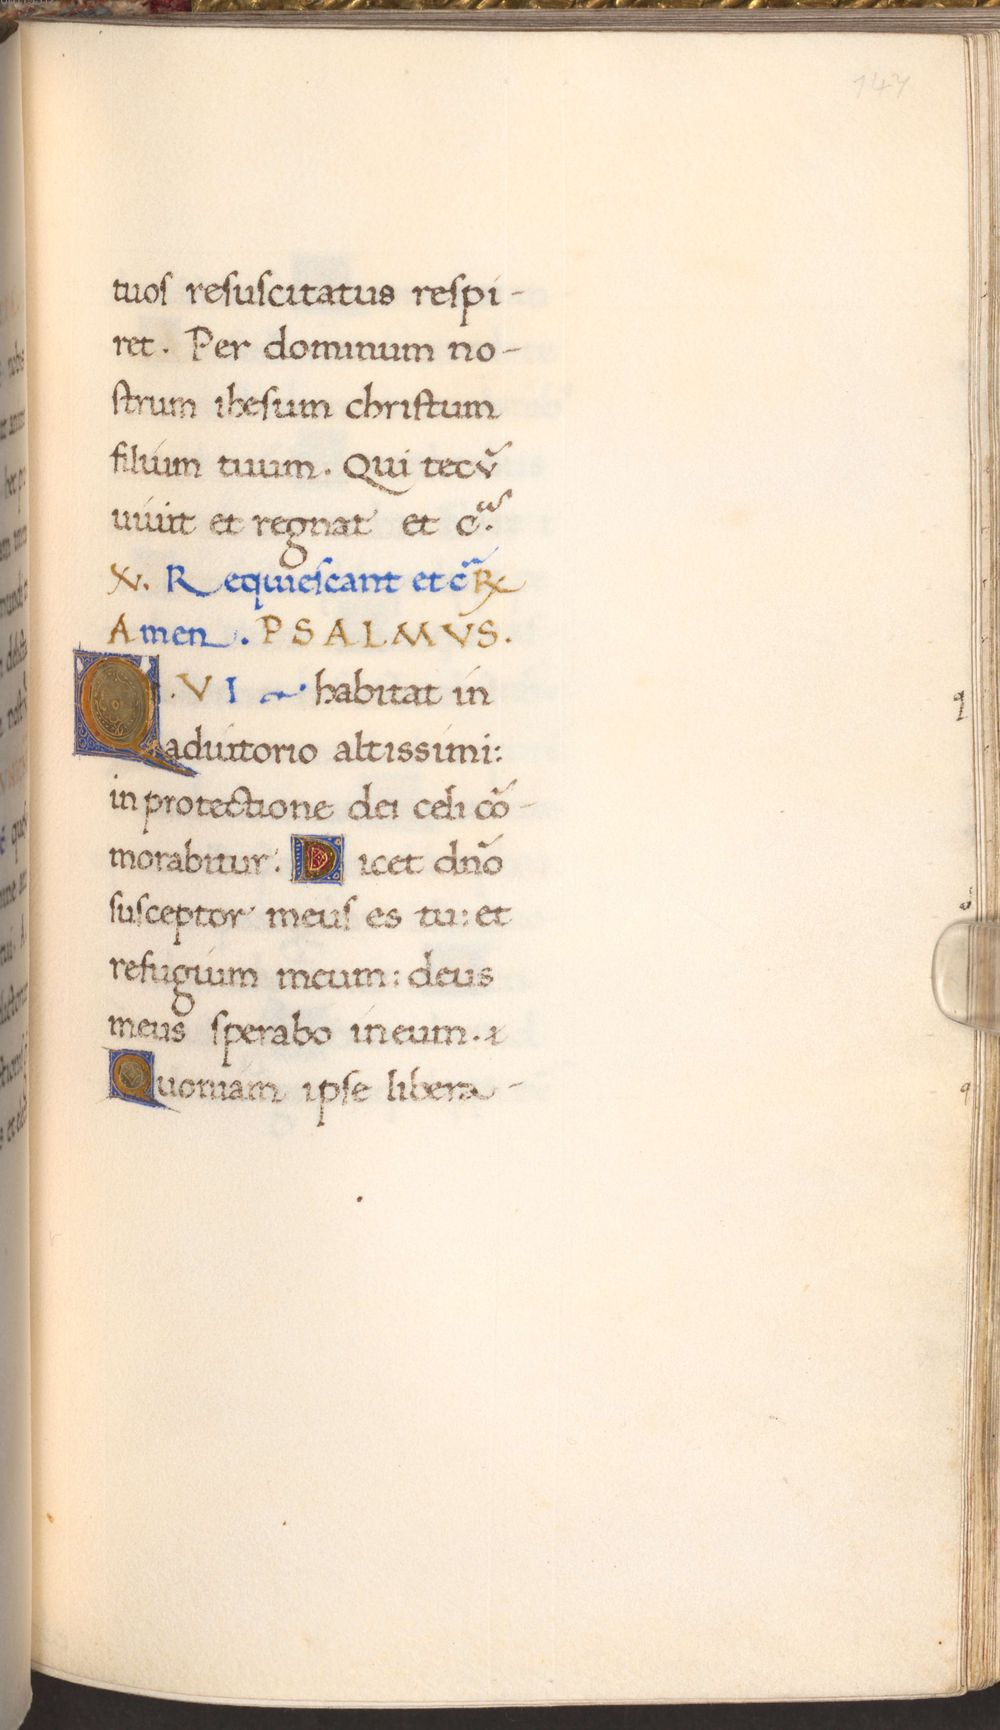 147
tuos resuscitatus respi-
ret. Per dominum no-
strum ihesum christum
filium tuum. Qui tecū
uiuit et regnat et cͣ.
V. Requiescant et c̄ ℞
Amen. PSALMVS.
QVI habitat in
adiutorio altissimi:
in protectione dei celi cō-
morabitur. Dicet dn̄o
susceptor meus es tu: et
refugium meum: deus
meus sperabo in eum.
Quoniam ipse libera-